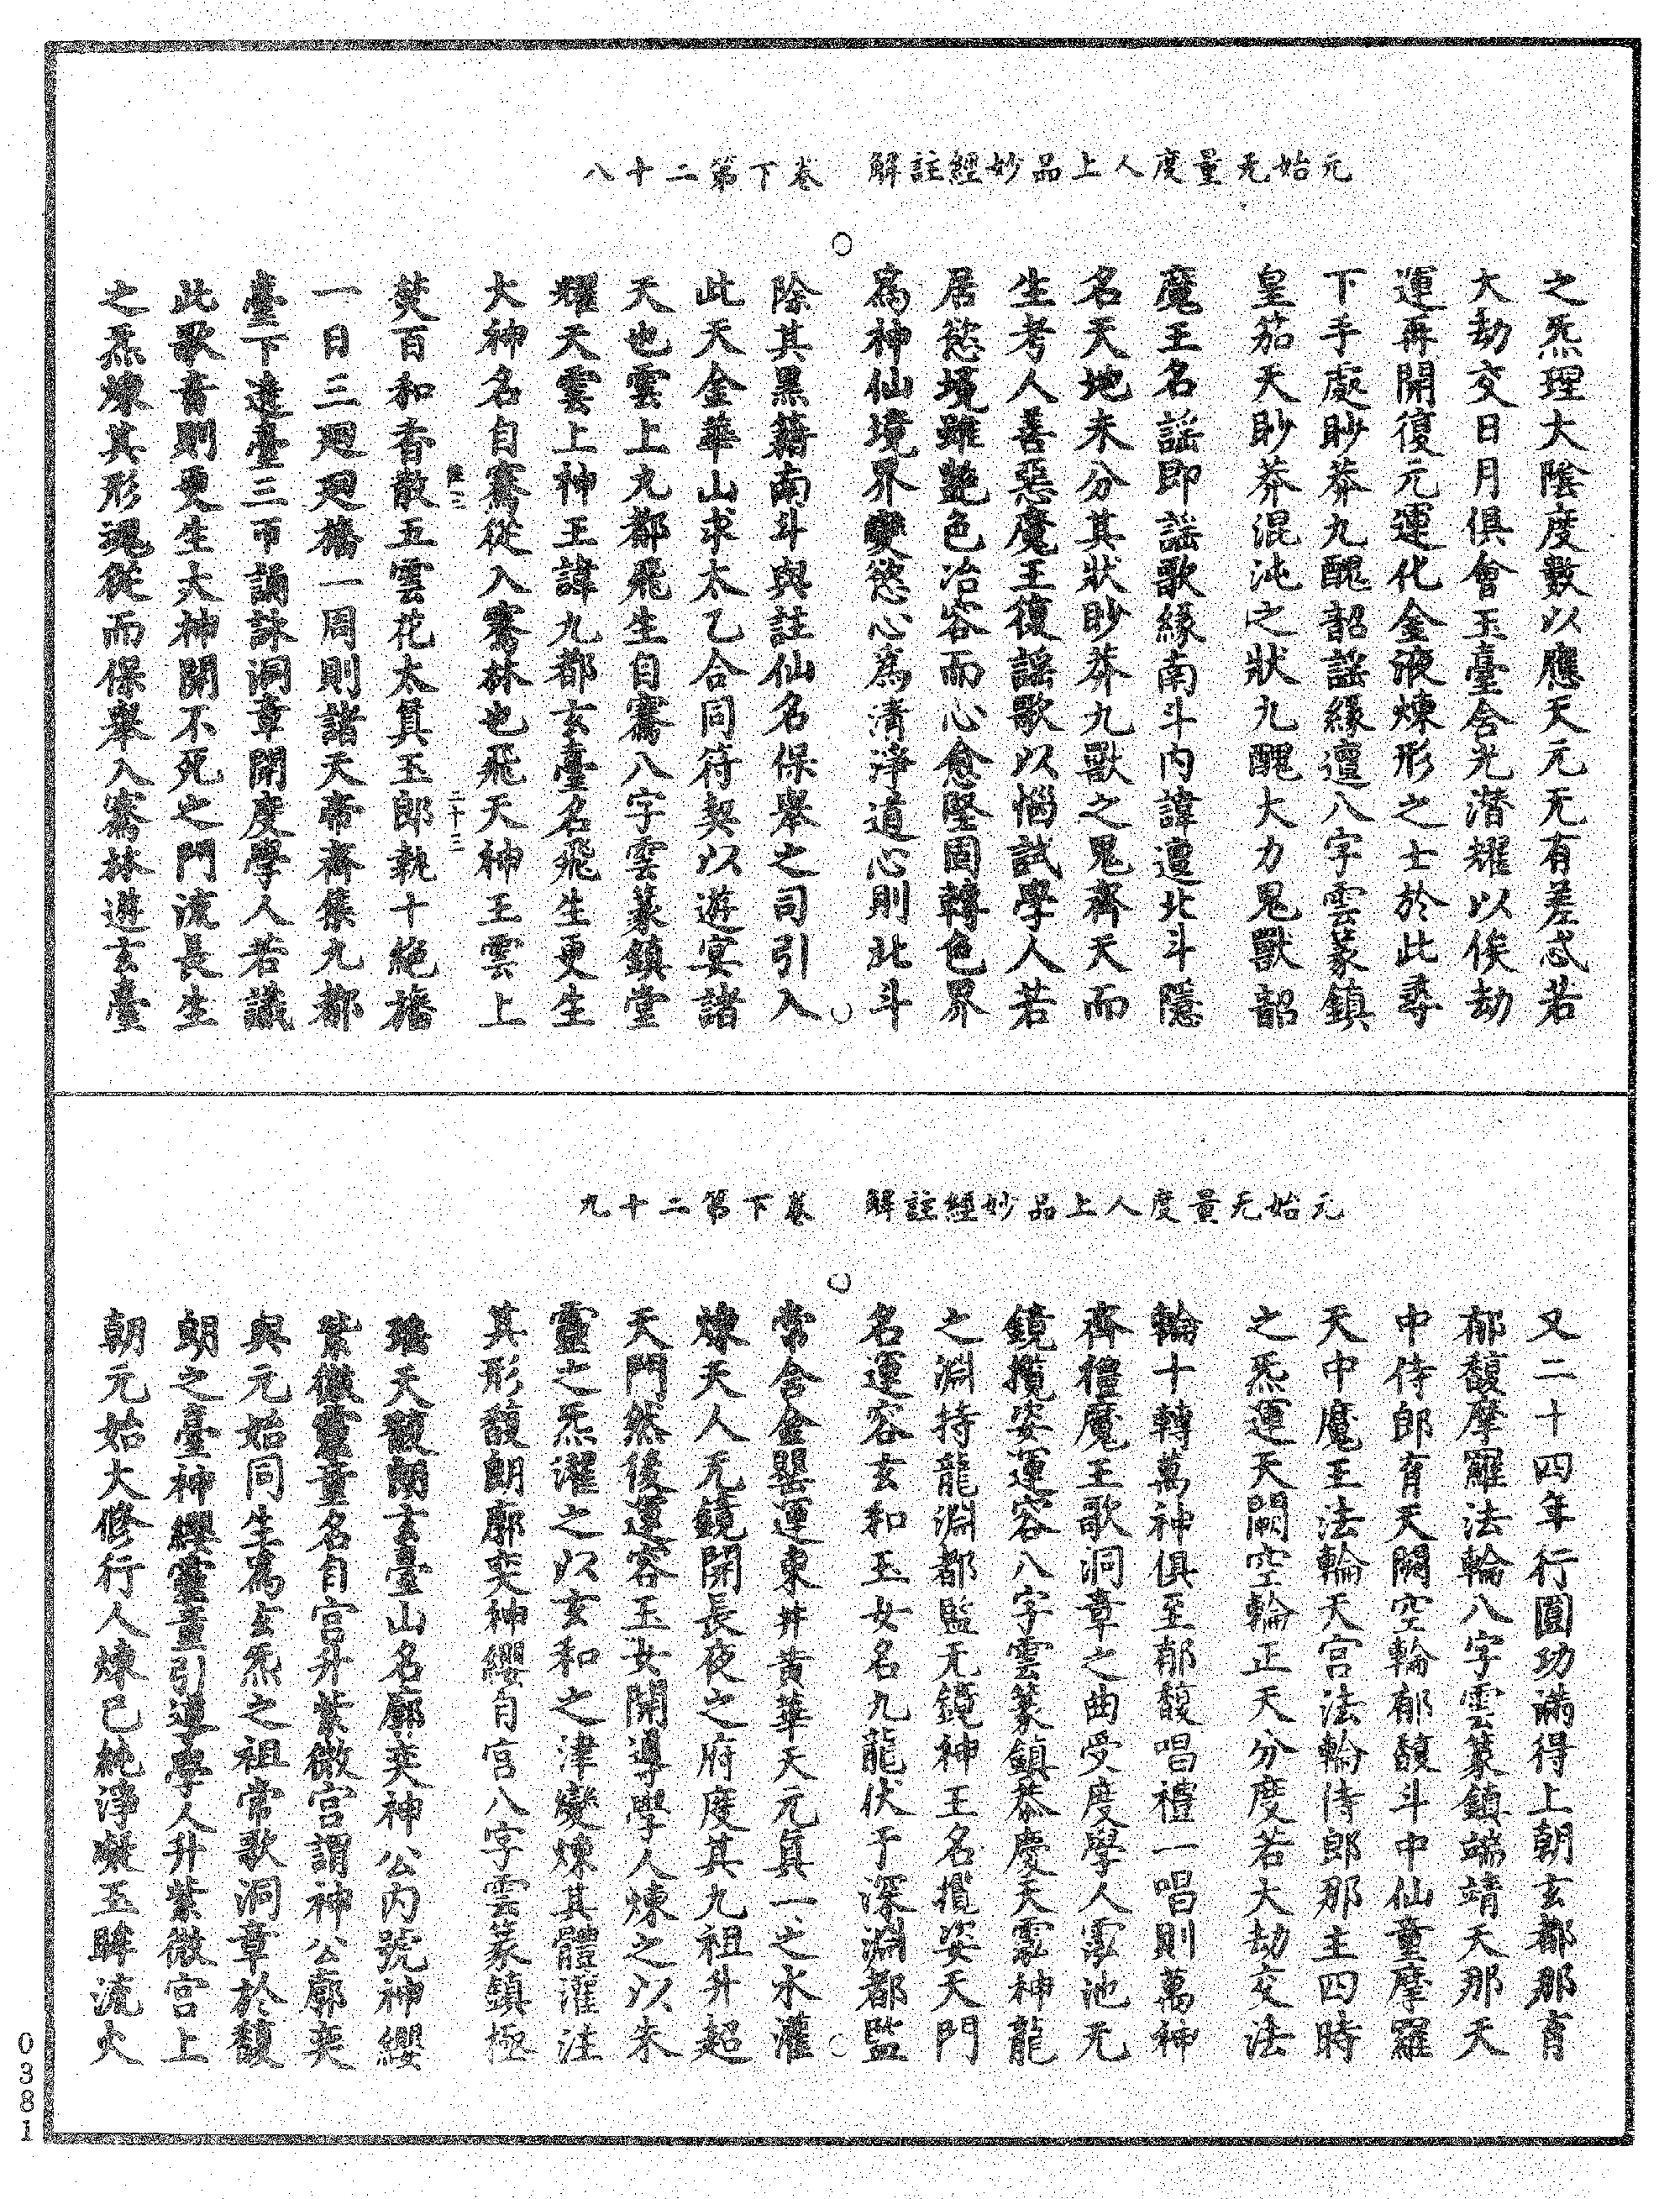 元始无量度人上品妙經註解　卷下第二十八
之炁理大陰度數以應天元无有差忒若
大劫交日月俱會玉臺含光潛耀以俟劫
運再開復元運化金液煉形之士於此尋
下手處眇莽九醜韶謡緣邅八字雲篆鎮
皇笳天眇莽混沌之狀九醜大力鬼獸韶
魔王名謡即謡歌緣南斗内諱邅北斗隱
名天地未分其狀眇莽九獸之鬼齊天而
生考人善惡魔王復謡歌以惱試學人若
居慾境雖艶色冶容而心愈堅固轉色界
爲神仙境界變慾心爲清淨道心則北斗
除其黑籍南斗與註仙名保舉之司引入
此天金華山求太乙合同符契以遊宴諸
天也雲上九都飛生自騫八字雲篆鎮堂
耀天雲上神王諱九都玄臺名飛生更生
大神名自騫從入騫林也飛天神王雲上
二十三
焚百和香散五雲花太真玉郎執十絶旛
一日三廻廻旛一周則諸天帝齊集九都
臺下遶臺三帀誦詠洞章開度學人若議
此歌音則更生大神開不死之門流長生
之炁煉其形魂從而保舉入騫林遊玄臺
元始无量度人上品妙經註解　卷下第二十九
又二十四年行圓功滿得上朝玄都那育
郁馥摩羅法輪八字雲篆鎮端靖天那天
中侍郎育天關空輪郁馥斗中仙童摩羅
天中魔王法輪天宫法輪侍郎那主四時
之炁運天關空輪正天分度若大劫交法
輪十轉萬神俱至郁馥唱禮一唱則萬神
齊禮魔王歌洞章之曲受度學人霐池无
鏡攬姿運容八字雲篆鎮恭慶天霐神龍
之淵持龍淵都監无鏡神王名攬姿天門
名運容玄和玉女名九龍伏于深淵都監
常含金罌運東井黄華天元真一之水灌
煉天人无鏡開長夜之府度其九祖升超
天門然後運容玉女開導學人煉之以朱
靈之炁濯之以玄和之津變煉其體灌注
其形馥朗廓奕神纓自宫八字雲篆鎮極
瑤天馥朗玄臺山名廓奕神公内號神纓
紫微靈童名自宫升紫微宫謂神公廓奕
與元始同生爲玄炁之祖常歌洞章於馥
朗之臺神纓靈童引導學人升紫微宫上
朝元始大修行人煉已純淨凝玉眸流火
0381